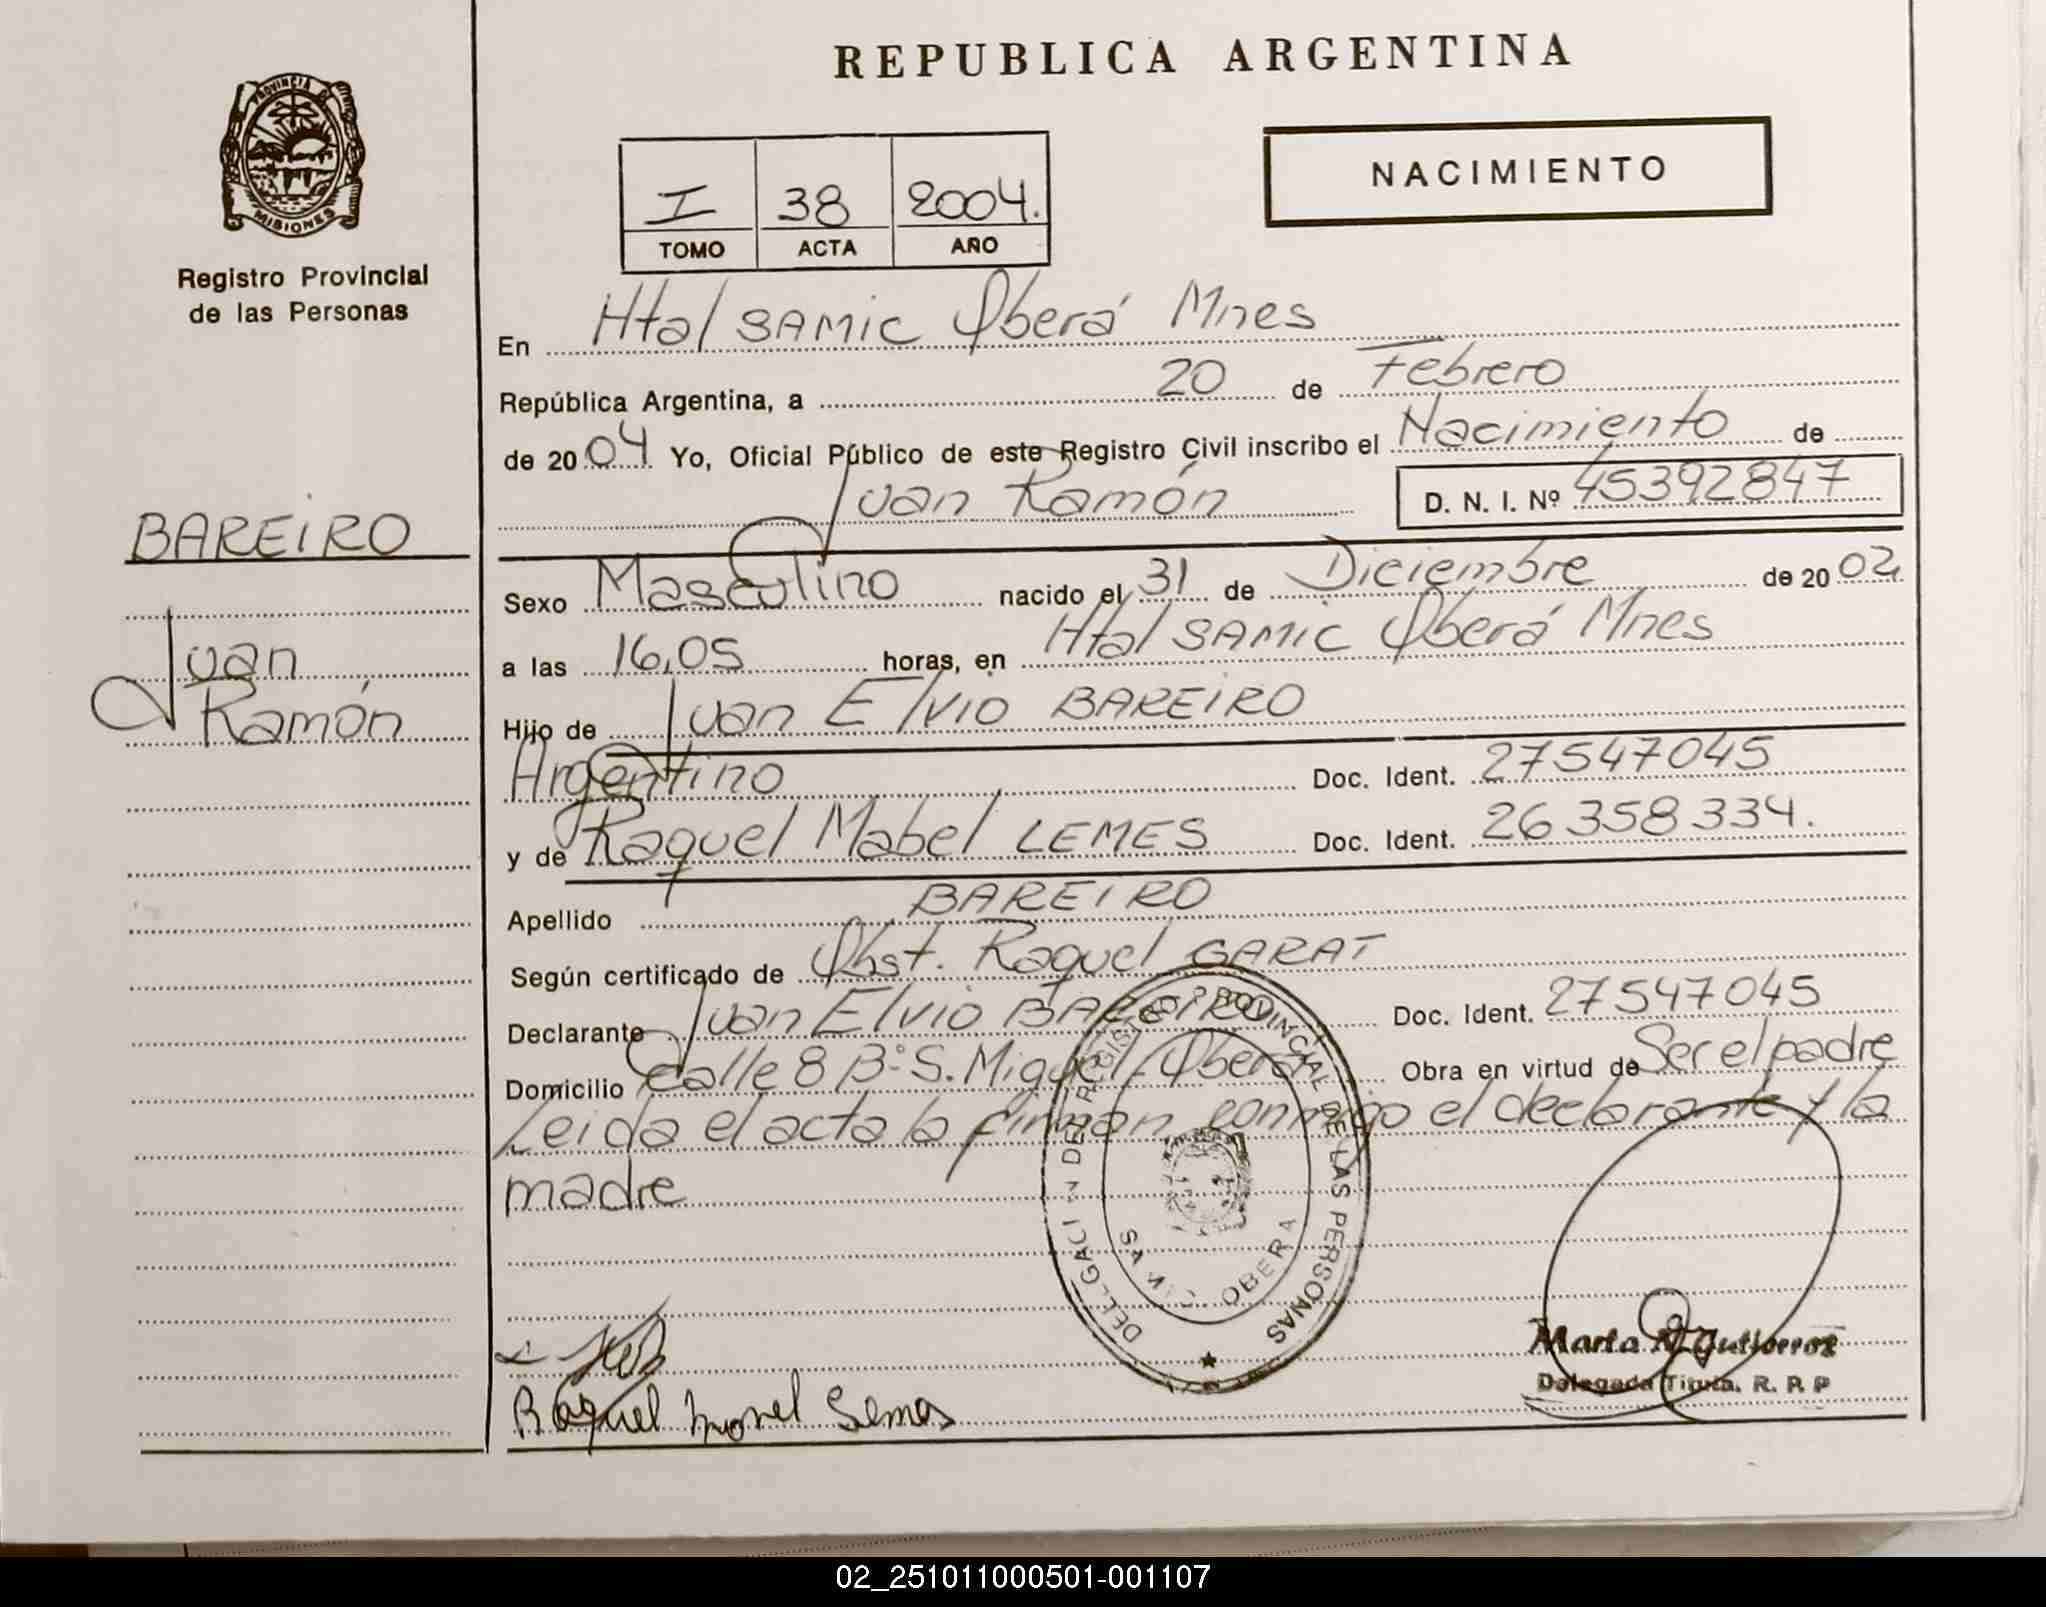 REPUBLICA ARGENTINA
PROVINCIA DE
MISIONES
Registro Provincial
de las Personas
I 38 2004.
TOMO ACTA AÑO
NACIMIENTO
En Htal SAMIC Oberá Mnes
República Argentina, a 20 de Febrero
de 2004 Yo, Oficial Público de este Registro Civil inscribo el Nacimiento de
Juan Ramón D. N. I. Nº 45392847
BAREIRO
Juan
Ramón
Sexo Masculino nacido el 31 de Diciembre de 2002
a las 16,05 horas, en Htal SAMIC Oberá Mnes
Hijo de Juan Elvio BAREIRO
Argentino Doc. Ident. 27547045
y de Raquel Mabel LEMES Doc. Ident. 26358334.
Apellido BAREIRO
Según certificado de Obst. Raquel GARAT
Declarante Juan Elvio BAREIRO Doc. Ident. 27547045
Domicilio Calle 8 Bº S. Miguel-Oberá Obra en virtud de Ser el padre
Leida el acta la firman conmigo el declarante y la
madre
REGISTRO PROVINCIAL DE LAS PERSONAS
OBERA
Raquel Mabel Lemes
Marta N. Gutierrez
Delegada Titular. R. P. P
02_251011000501-001107